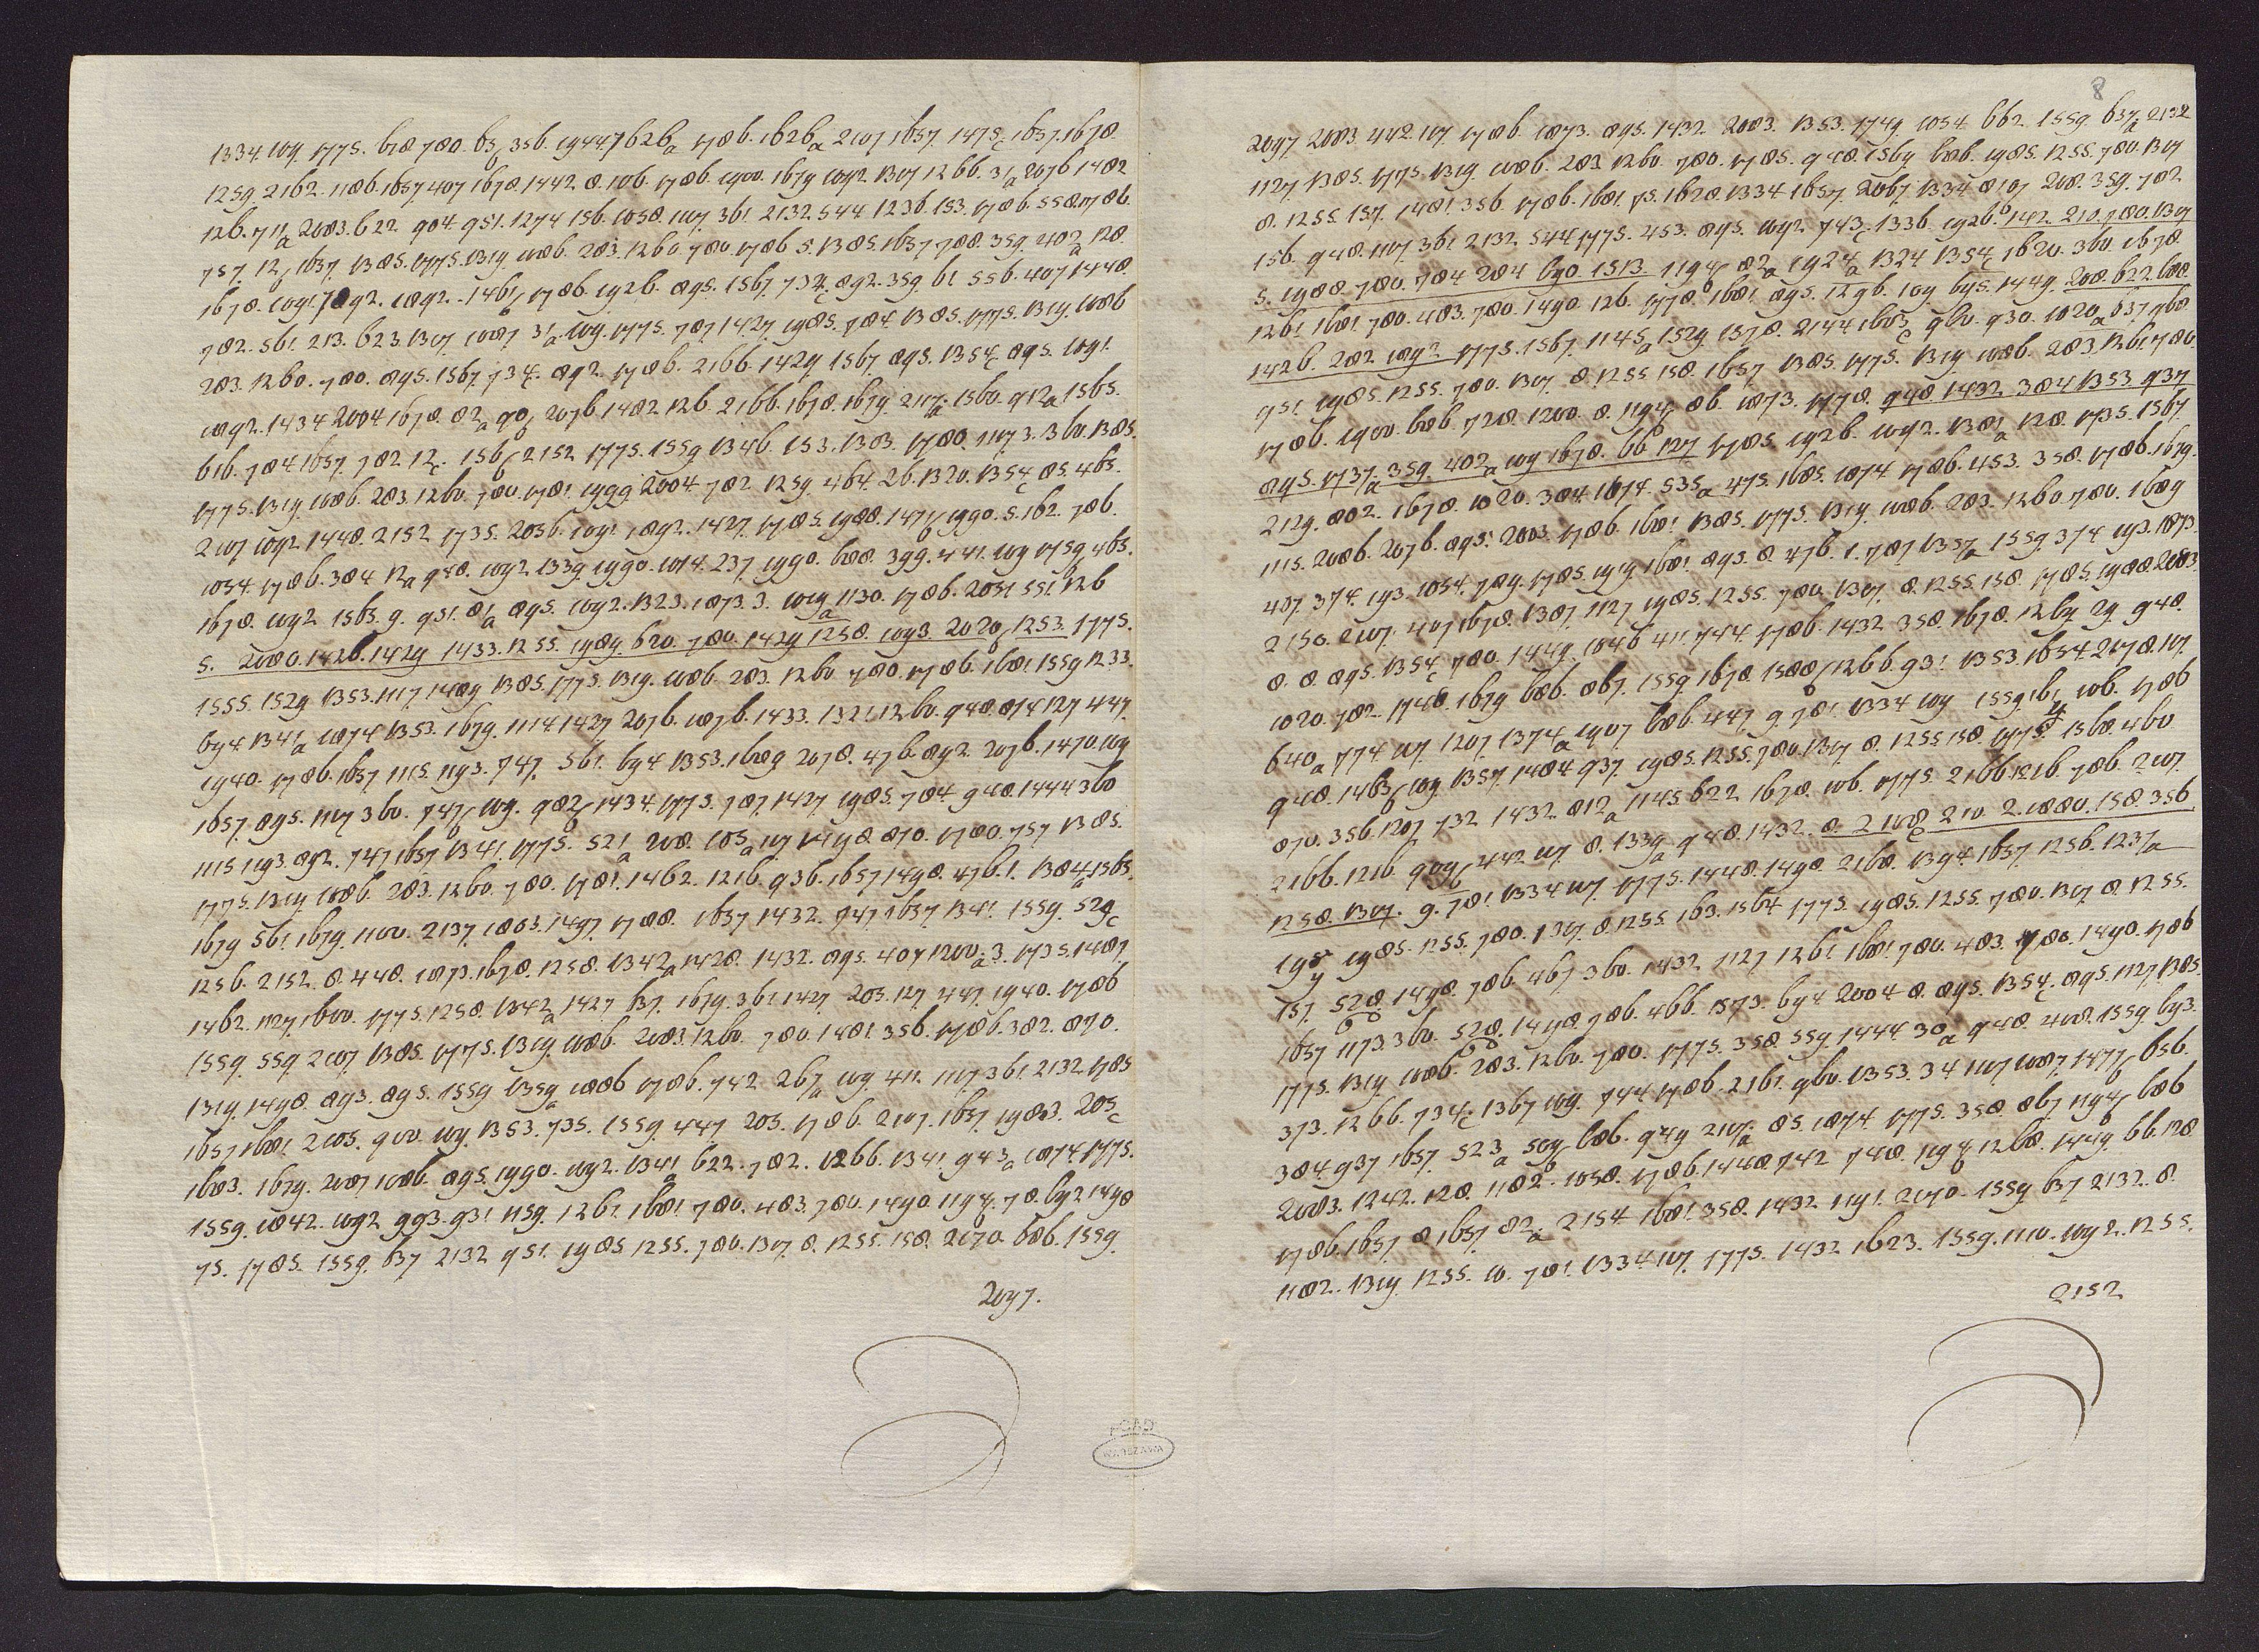 1334. 109. 1775. 678. 780. 65b 356. 1944. 7626a 1786. 1626a 2107 1657. 1475c 1657. 1678.
1259. 2162. 1186. 1657. 407 1678. 1442. 8. 106. 1786. 1900. 1679 1092 1307 1266. 31a 2076 1482
126. 711a 2083. 622. 904. 951. 1274 156. 1058. 1107. 361. 2132. 544 1236. 153. 1786. 558. 1786.
757 12b 1657. 1385. 1775. 1319. 1086. 283. 1260 780 1786 5. 1385. 1657 788. 359. 402a 128.
1678. 1091. 7892. 1892. 1461b 1786. 1926. 895. 1567. 734c 892. 359 61 556. 407 1448.
782. 561. 213. 623. 1307 1087 31a 109. 1775. 787 1427 1985. 784. 1385. 1775. 1319. 1086
283. 1260. 780. 895. 1567 734c 892. 1786. 2166. 1429 1567 895. 1354c 895. 1091.
1892. 1434 2004 1678. 82a 90b 2076. 1482 126. 2166. 1678. 1679. 2117a 1560. 912a 1565.
616. 784 1657. 782 12c 156b 2152 1775. 1559 1346. 153. 1303. 1780. 1173. 360. 1385.
1775. 1319. 1086. 283. 1260. 780. 1781. 1999 2004. 782. 1259. 464. 26. 1320. 1354c 85. 463.
2107 1092 1448. 2152 1735. 2036. 1091. 1892. 1427. 1785. 1988. 1471b 1990. 5. 162. 786.
1054. 1786. 384 12a 948. 1092 1339. 1990. 1074. 237. 1990. 688. 399. 441. 109 1759 463.
1678. 1092 1565. 9. 951. 81a 895. 1092. 1323. 1873. 3. 1019a 1130. 1786. 2051 551b 126
5. 2080. 1426. 1429 1433. 1255. 1989 620. 780. 1429 1258 1093 2020b 1253. 1775.
1555. 1529 1353. 1117. 1489 1385. 1775. 1319. 1086. 283. 1260 780 1786. 1681 1559 1233.
694 1341a 1074 1353. 1679. 1114. 1427 2076. 1076. 1433. 132. 1260. 948. 874 127 447.
1940. 1786. 1657 1115. 1193. 747. 561. 694 1353. 1689 2078. 476. 892. 2076. 1470. 109
1657. 895. 1107 360. 747b 109. 982b 1434. 1775. 787. 1427 1985. 784 948. 1444 360
1115 1193 892. 747 1657 1341. 1775. 521a 208. 105a 107 1498 870. 1780. 757 1385.
1775. 1319. 1086. 283. 1260. 780. 1781. 1462. 1216. 936. 1657 1498. 476. 1. 1384a 1565.
1679 561. 1679. 1100. 2137. 1863. 1497 1788. 1657 1432. 747 1657 1341. 1559. 529c
1256. 2152. 8. 448. 1873. 1678. 1258. 1342a 1428. 1432. 895. 407 1200a 3. 1735. 1487
1462. 1127. 1600. 1775. 1258. 1342a 1427 637. 1679. 361. 1427. 203. 127 447. 1940. 1786
1559. 559. 2107 1385. 1775. 1319. 1086. 2083. 1260. 780. 1481. 356. 1786. 382. 870.
1319. 1498. 893. 895. 1559 1359a 1086 1786. 742 267a 109 411. 1107 361. 2132 1785
1657 1681 2105. 900. 109. 1353. 735. 1559. 447 203. 1786. 2107. 1657 1983. 205c
1683. 1679. 2087 1086. 895. 1990. 1092. 1341a 622. 782. 1266. 1341. 943a 1874 1775.
1559. 1842. 1092 993. 931 1159. 1261. 1681 780. 483. 780. 1490 1194b 78. 692 1498
75. 1785. 1559. 637 2132 951. 1985 1255. 780. 1307. 8. 1255. 158. 2070. 686. 1559.
2097.
8
2097 2083. 442. 107 1786. 1873. 895. 1432. 2083. 1353. 1749. 1054. 662. 1559. 637a 2132
1127. 1385. 1775. 1319. 1086. 283. 1260. 780. 1785. 948. 1569 686. 1985. 1255. 780. 1307
8. 1255. 157. 1481. 356. 1786. 1681. 75. 1628. 1334 1657. 2067. 1334 8107 208. 359. 782
156. 948. 1107. 361 2132 544 1775. 453. 895. 1092 743c 1336. 1926b 142. 210. 780. 1307
5. 1988. 780. 784 284 690 1513 1194b 82a 1924a 1324 1354c 1620. 360. 1678.
1261 1681 780. 483. 780. 1490. 126. 1778. 1681 895. 1296. 109 695. 1449. 208. 622. 688.
1426. 282. 1092 1775. 1567. 1145a 1529. 1578. 2144 1603c 960. 930. 1020a 637 960
951. 1985. 1255. 780. 1307. 8. 1255 158. 1657 1385. 1775. 1319 1086. 283. 1261. 780.
1786. 1900. 686. 728. 1200. 8. 1194b 86. 1873. 1778. 948. 1432. 384 1353. 937
895. 1737a 359. 402a 109 1678. 66. 127 1785. 1926. 1092. 1381a 128. 1735. 1567
2129. 802. 1678. 1020. 384 1674. 535a 475. 1685. 1874 1786. 453. 358. 1786. 1679.
1115. 2086. 2076. 895. 2003. 1786. 1681 1385. 1775. 1319. 1086. 283. 1260 780. 1689
407. 374. 193. 1054. 789. 1785. 1919. 1681 895. 8. 476. 1. 787 1357a 1559. 374 193. 1873.
2150. 2107. 407 1678. 1387. 1127 1985. 1255. 780. 1307. 8. 1255. 158. 1785. 1988. 2083
8. 8. 895. 1354c 780. 1449. 1846 411 744 1786. 1432. 358. 1678. 1269 29. 948.
1020. 782. 1746. 1679 686. 867. 1559. 1678 1588b 1266. 931. 1353. 1654. 2178. 107.
640a 774 107 1207 1374a 1907 686. 447. 9. 781. 1334 109 1559 161b 106. 1786
948. 1463b 109. 1357. 1484 937. 1985. 1255. 780. 1307 8. 1255 158. 1775 1568 460
870. 356. 1207 732. 1432. 812a 1145 622 1678. 106. 1775. 2166. 1216. 786. 2107.
2166. 1216. 909b 442 107 8. 1339a 948. 1432. 8. 2108c 210. 2. 1880. 158. 356
1258. 1307. 9. 781. 1334 107. 1775. 1448. 1498. 2168. 1394. 1657. 1256. 1237a
195 1985. 1255. 780. 1307. 8. 1255. 163. 1564 1775. 1985. 1255. 780. 1307 8. 1255.
157. 528b 1498. 786. 467 360. 1432 1127 1261. 1681. 780. 483. 780. 1490. 1786
1657 1173. 360. 528b 1498. 786. 466. 1573. 694 2004 8. 895. 1354c 895. 1127. 1385.
1775. 1319 1086. 283. 1260. 780. 1775. 358 559. 1444. 30a 948. 408. 1559 693.
373. 1266. 734c 1367 109. 744 1786. 2161. 960. 1353. 34 1107 1087. 1477b 656.
384. 937 1657. 523a 509b 686. 949 2107a 85. 1874. 1775. 358 867 1194b 686
2083. 1242. 128. 1182. 1058. 1786. 1448 742 748. 1194b 1268. 1449 66. 128.
1786. 1657 8 1657. 82a 2154 1681. 358. 1432 1191. 2070. 1559 637 2132. 8.
1182. 1319. 1255. 10. 781. 1334 107. 1775. 1432 1623. 1559. 1110. 1092. 1255.
2152
AGAD
WARSZAWA